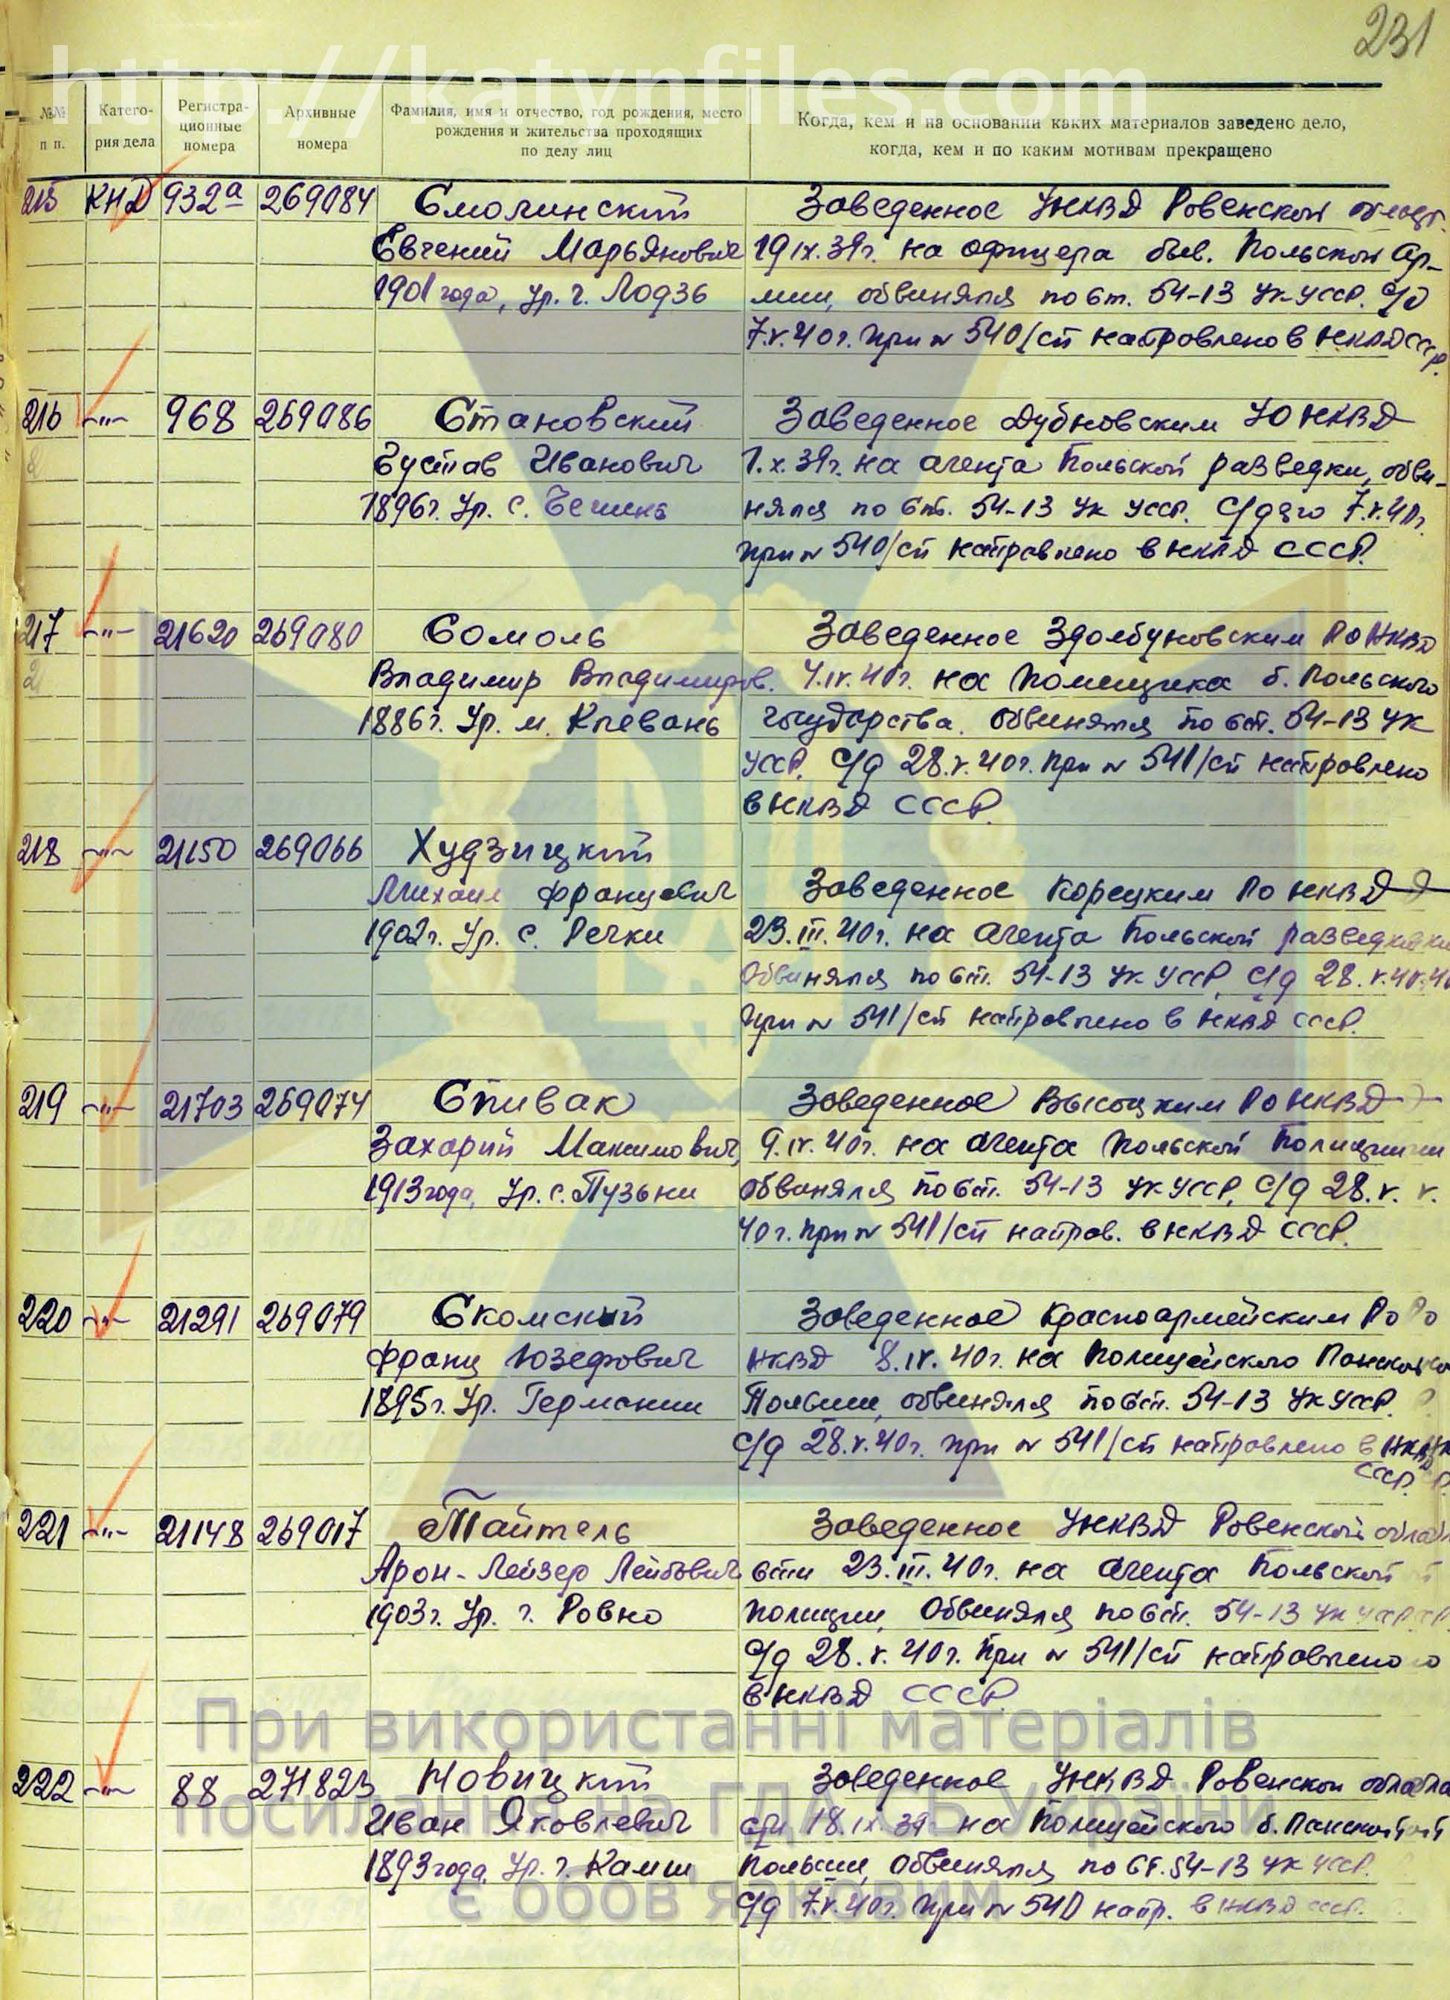 231
http://katynfiles.com
№№ п п.
Катего-
рия дела
Регистра-
ционные
номера
Архивные
номера
Фамилия, имя и отчество, год рождения, место
рождения и жительства проходящих
по делу лиц
Когда, кем и на основании каких материалов заведено дело,
когда, кем и по каким мотивам прекращено
215 КНД 932а 269084 Смолинский Заведенное УНКВД Ровенской област.
Евгений Марьянович 19 IX.39г. на офицера быв. Польской Ар-
1901 года, ур. г. Лодзь мии, обвинялся по ст. 54-13 УК УССР. С/д
7.V.40г. при № 540/сп направлено в НКВД СССР.
216 -"- 968 269086 Становский Заведенное Дубновским УО НКВД
Густав Иванович 1.X.39г. на агента Польской разведки, обви-
1896г. Ур. с. нялся по ст. 54-13 УК УССР. С/дело 7.V.40г.
при № 540/сп направлено в НКВД СССР.
217 -"- 21620 269080 Сомоль Заведенное Здолбуновским РО НКВД
Владимир Владимиров. 4.IV.40г. на помещика б. Польского
1886г. Ур. м. Клевань государства. Обвинялся по ст. 54-13 УК
УССР. С/д 28.V.40г. при № 541/сп направлено
в НКВД СССР.
218 -"- 21150 269066 Худзицкий
Михаил Францевич Заведенное Корецким РО НКВД
1902г. Ур. с. Речки 23.III.40г. на агента Польской разведки
Обвинялся по ст. 54-13 УК УССР, С/д 28.V.40
при № 541/сп направлено в НКВД СССР.
219 -"- 21703 269074 Спивак Заведенное Высоцким РО НКВД
Захарий Максимович, 9.IV.40г. на агента Польской Полиции
1913 года, Ур. с. Пузьки обвинялся по ст. 54-13 УК УССР, С/д 28.V.
40г. при № 541/сп направ. в НКВД СССР.
220 -"- 21291 269079 Скомский Заведенное Красноармейским РО
Франц Юзефович НКВД 8.IV.40г. на Полицейского Панской
1895г. Ур. Германии Польши, обвинялся по ст. 54-13 УК УССР.
С/д 28.V.40г. при № 541/сп направлено в НКВД
СССР.
221 -"- 21148 269017 Тайтель Заведенное УНКВД Ровенской обла
Арон-Лейзер Лейбович сти 23.III.40г. на агента Польской
1903г. Ур. г. Ровно полиции, Обвинялся по ст. 54-13 УК УССР
С/д 28.V.40г. При № 541/сп направлено
в НКВД СССР
222 -"- 88 271823 Новицкий Заведенное УНКВД Ровенской обла
Иван Яковлевич сти 18.IX.39 на Полицейского б. Панской
1893 года, Ур. г. Польши, Обвинялся по ст. 54-13 УК УССР.
С/д 7.V.40г. при № 540 напр. в НКВД СССР.
При використанні матеріалів
посилання на ГДА СБ України
є обов'язковим